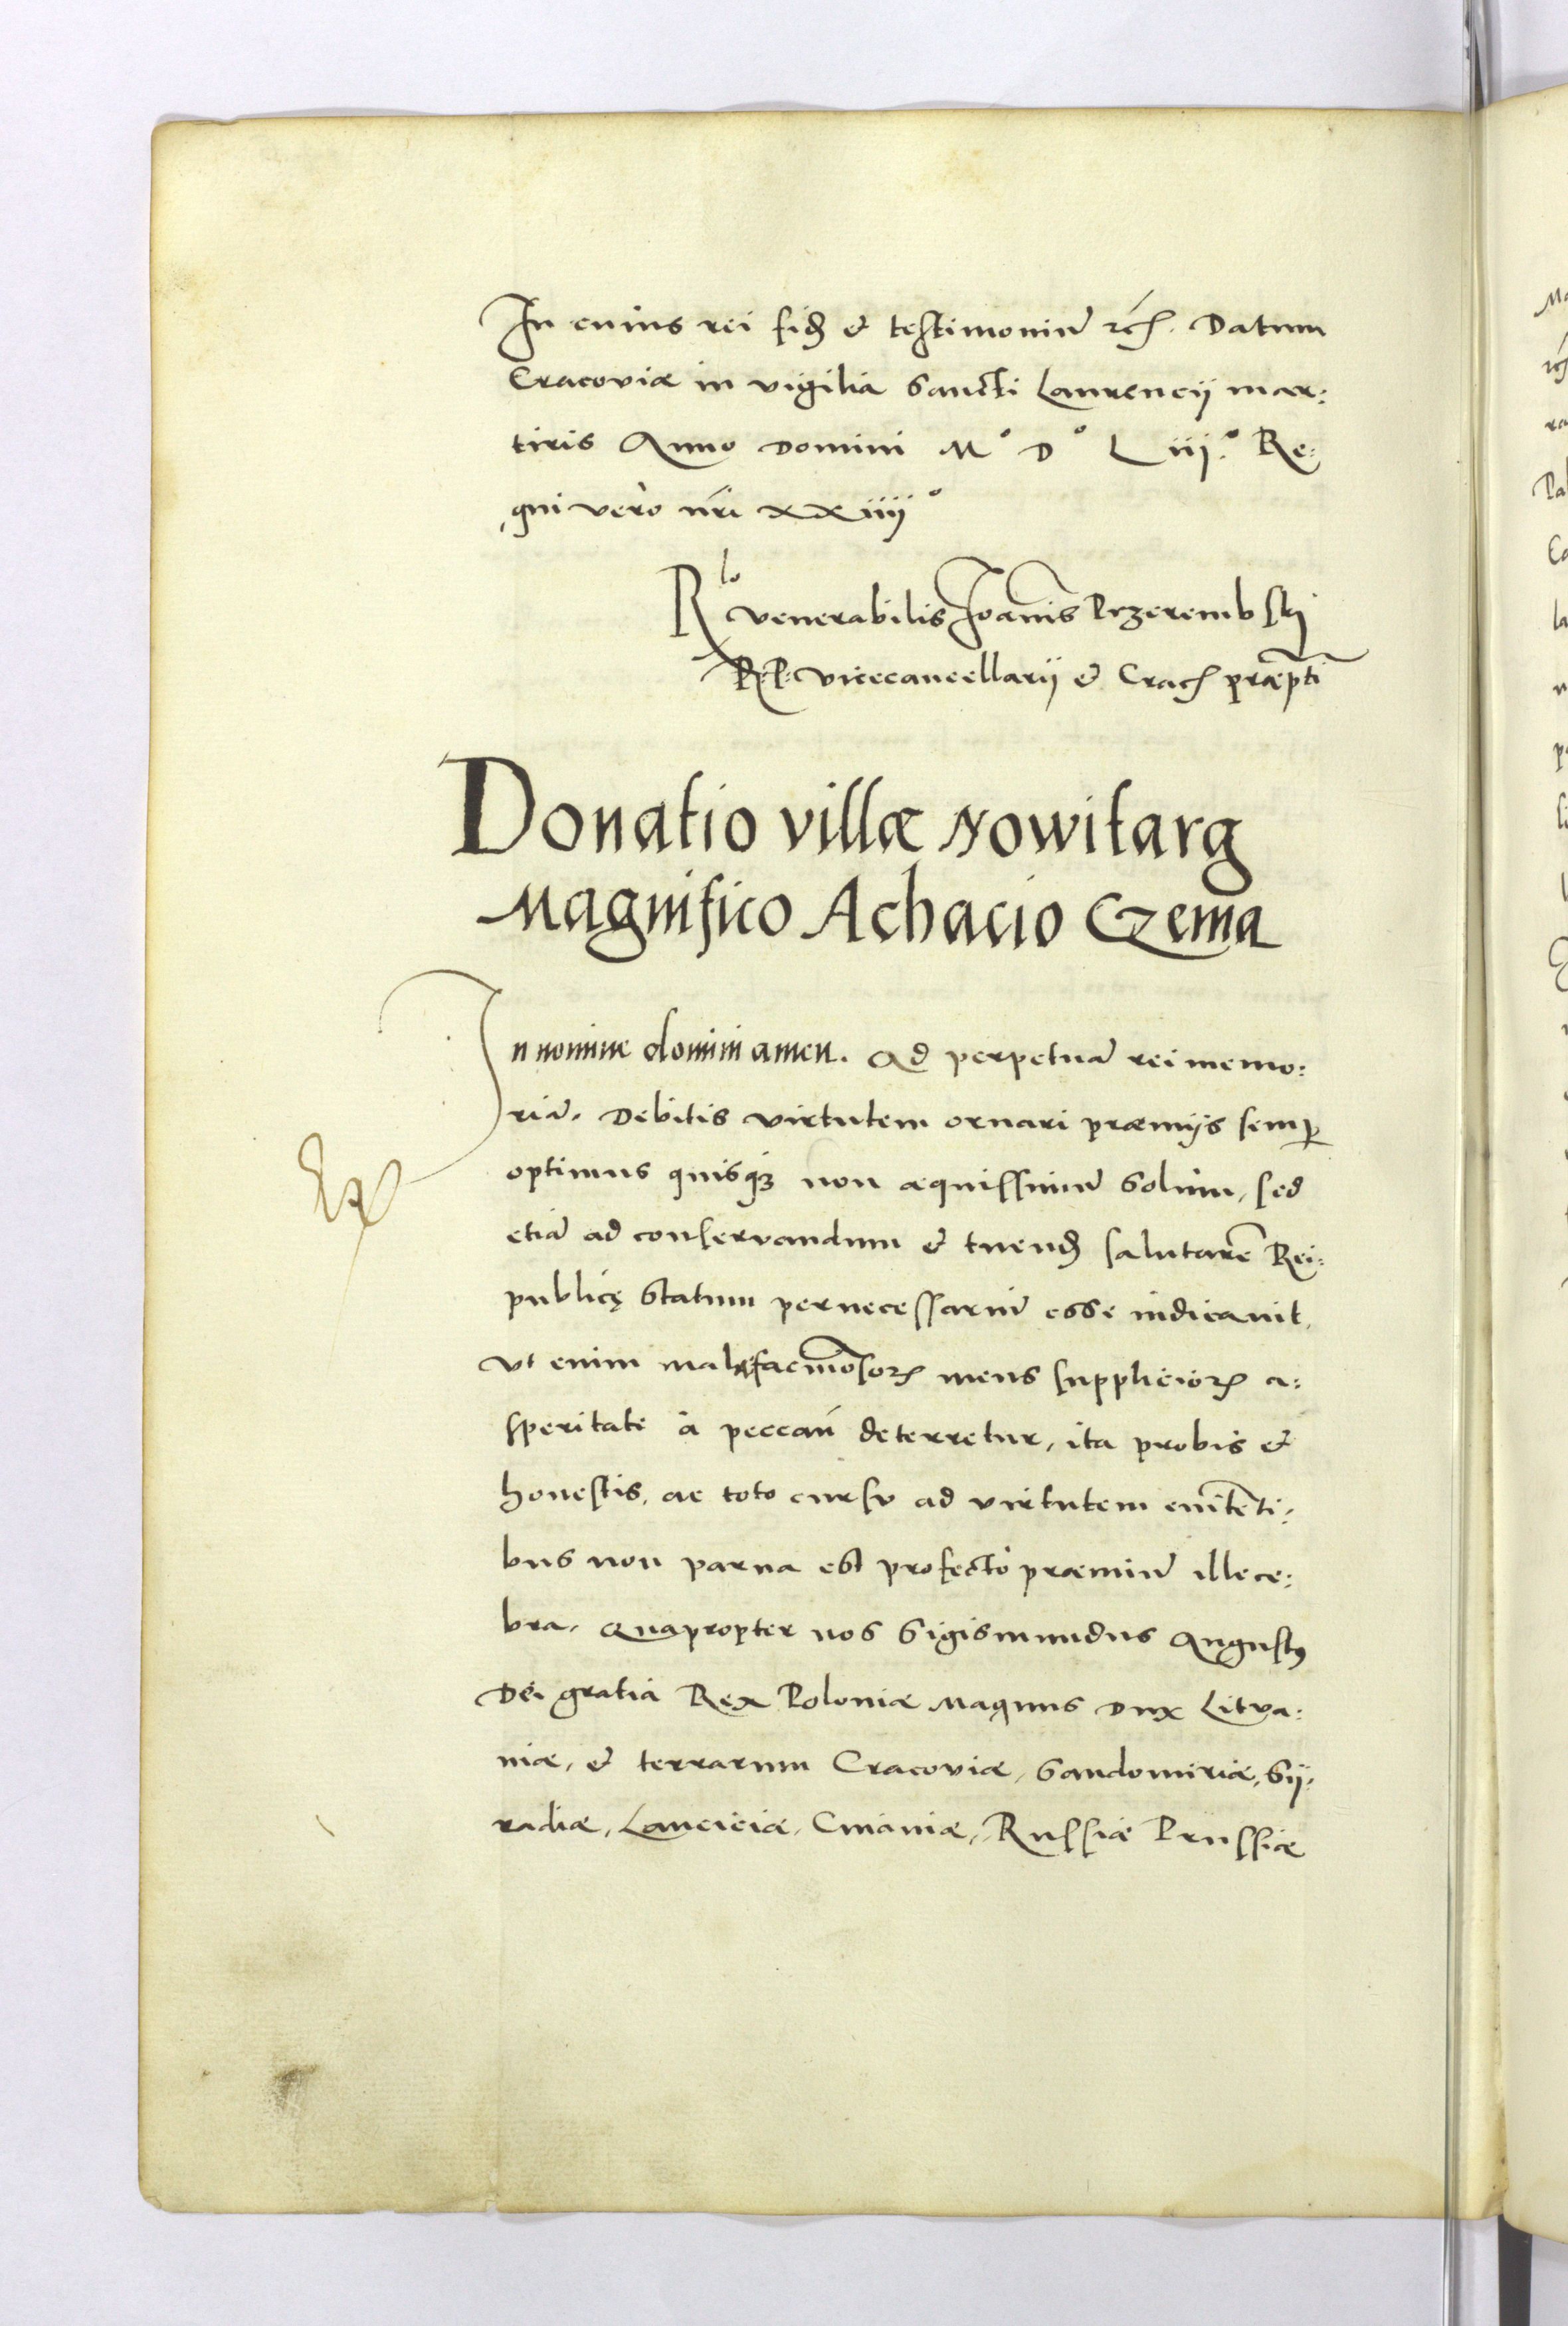 In cuius rei fidẽ et testimoniũ etc. Datum
Cracoviæ in vigilia Sancti Laurencij mar:
tiris Anno Domini M° D° L iij.° Re:
gni verò nr̃i xxiiij°
R^lo venerabilis Ioannis Przerembskj
R. P. Vicecancellarij et Crac̃ præpti
Donatio villæ Nowitarg
Magnifico Achacio Czema
In nomine domini amen. Ad perpetuã rei memo:
riã. Debitis virtutem ornari præmijs semp
optimus quisq; non æquissimũ Solùm, sed
etiã ad conservandum et tuendũ salutarẽ Rei:
publicę Statum pernecessariũ esse iudicavit,
Vt enim facinosor mens supplicior a:
speritate à peccan̄ deterretur, ita probis et
honestis, ac toto cursu ad virtutem enitẽti:
bus non parva est profectò præmiũ illece:
bra. Quapropter nos Sigismundus August9
Dei gratia Rex Poloniæ Magnus Dux Litva:
niæ, et terrarum Cracoviæ, Sandomiriæ, Sij:
radiæ, Lanciciæ, Cuiaviæ, Russiæ Prussiæ